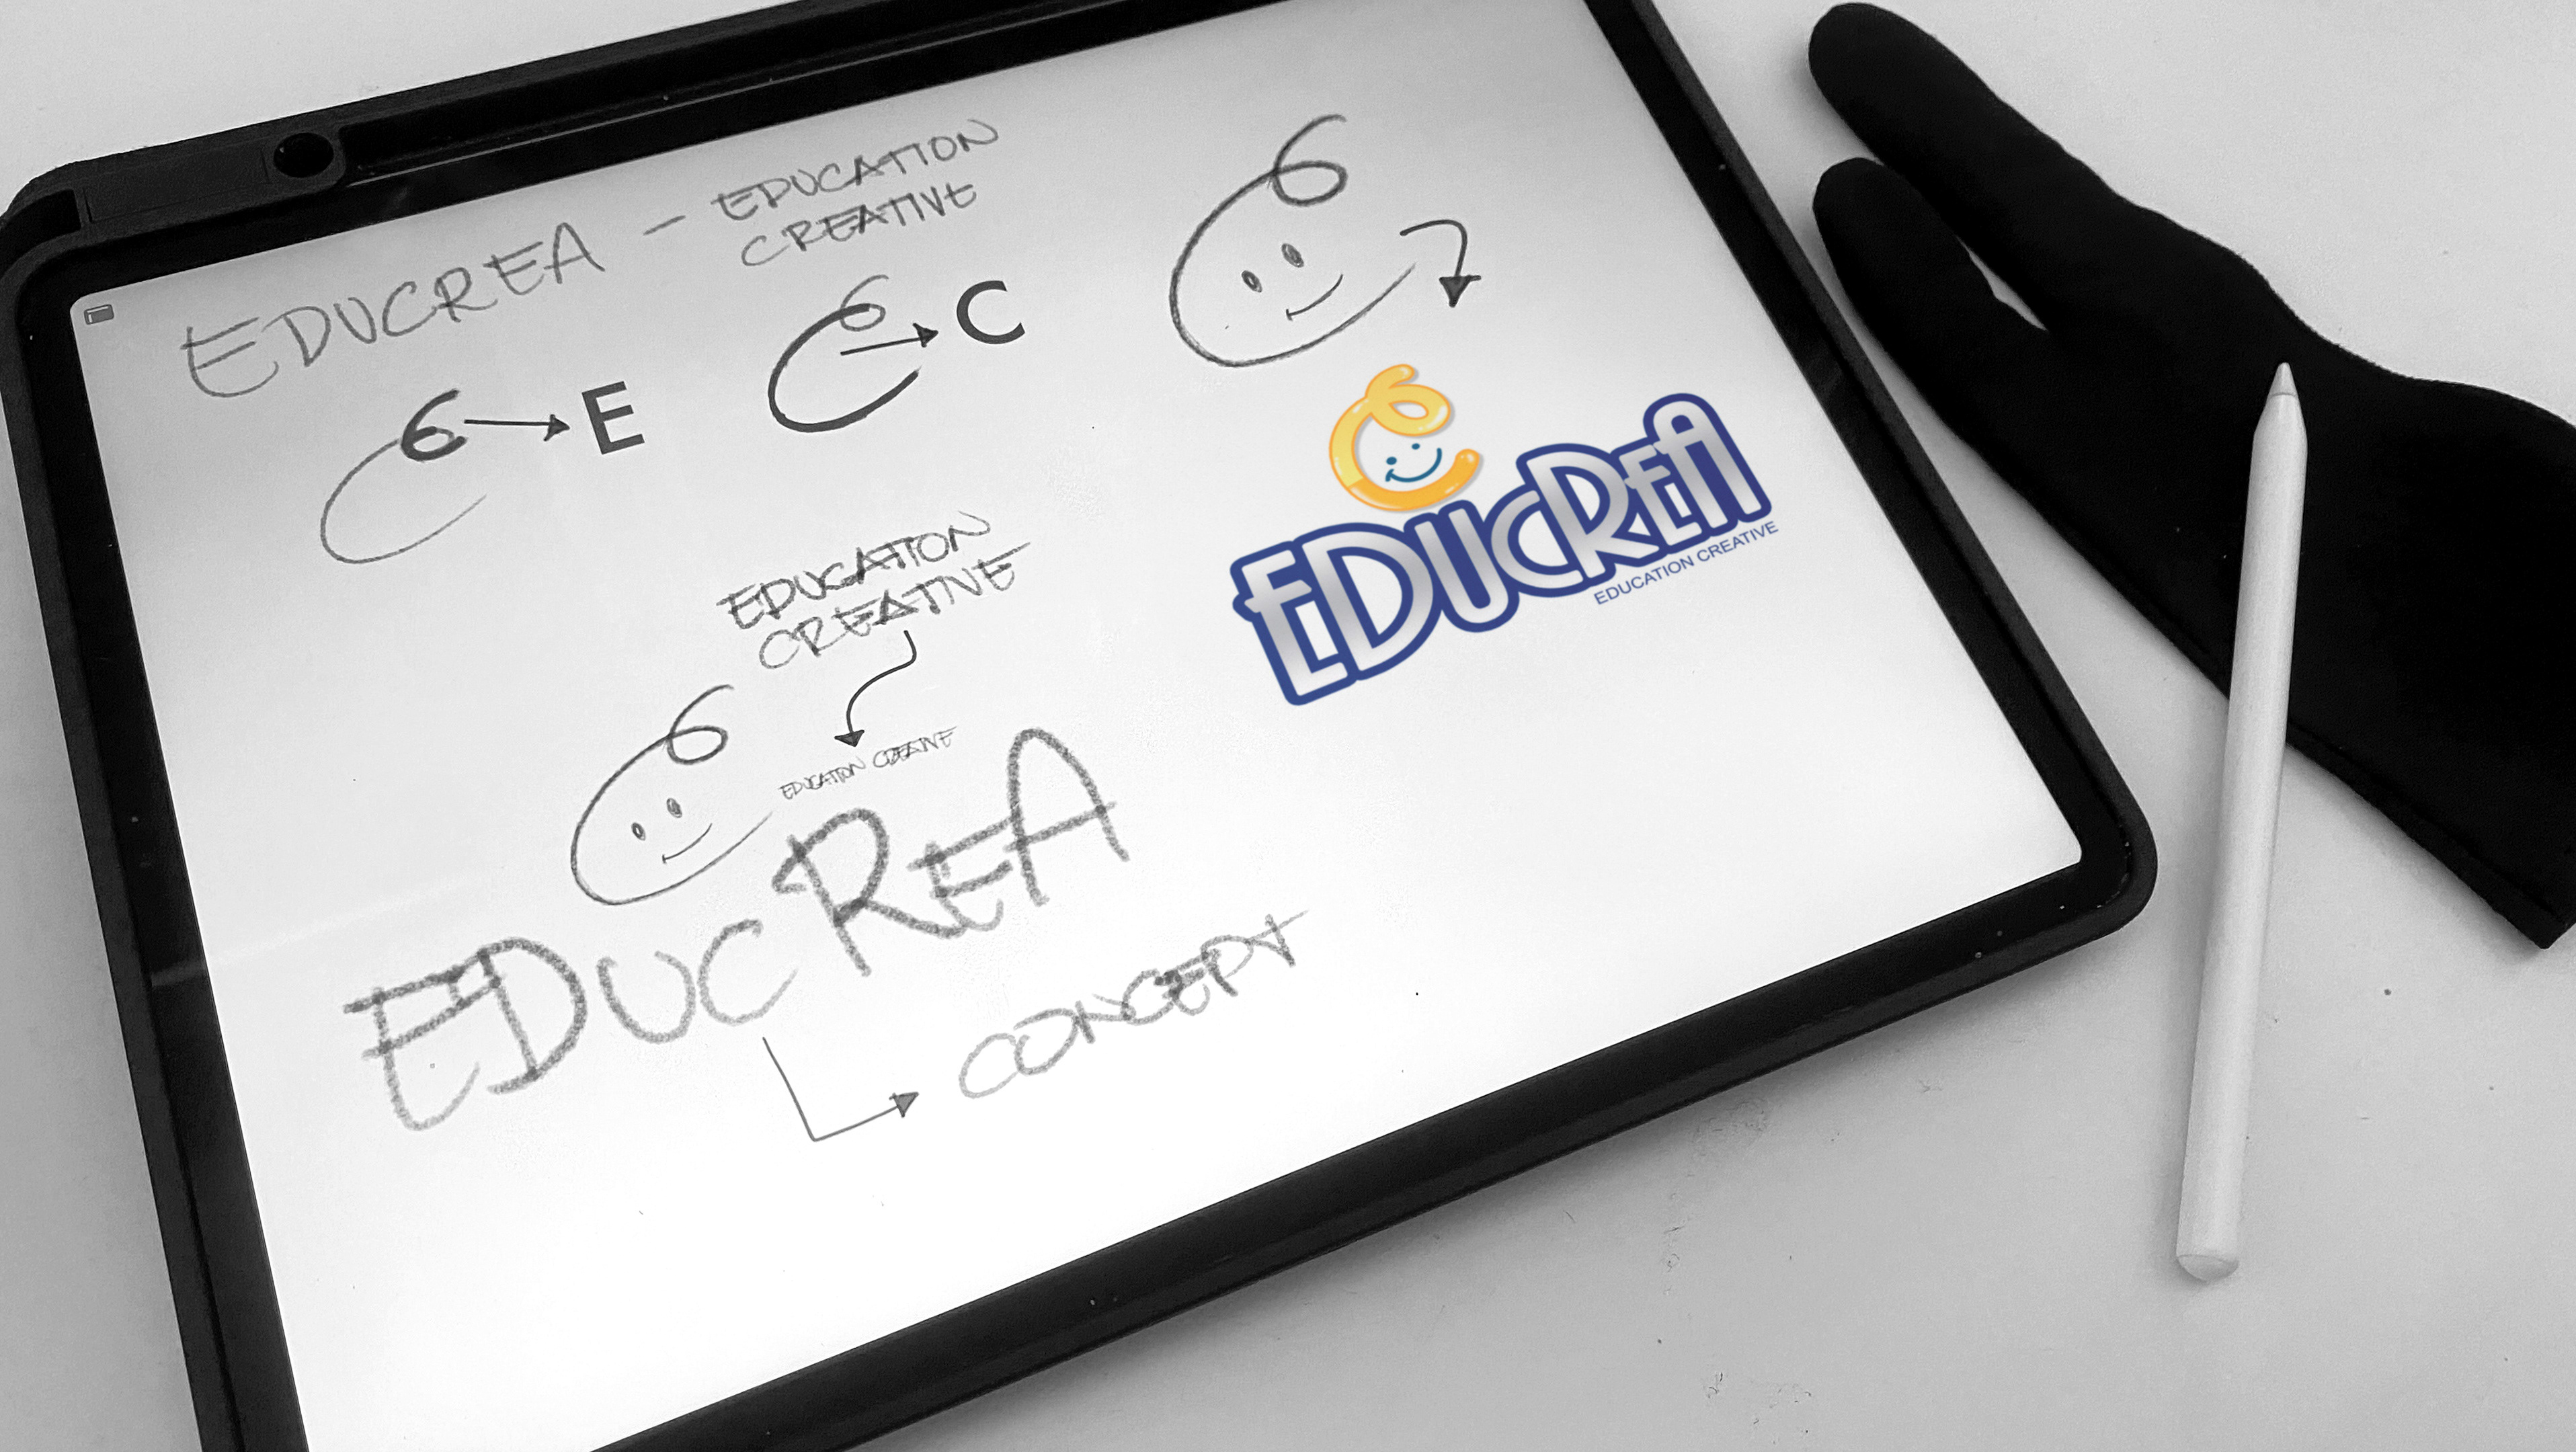 EDUCREA - EDUCATION
CREATIVE
E
C
EDUCREA
EDUCATION CREATIVE
EDUCATION
CREATIVE
EDUCATION CREATIVE
EDUCREA
CONCEPT